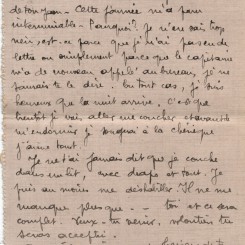 de ton jean - Cette journée m'a paru
interminable - Pourquoi? Je n'en sais trop
rien, est-ce parce que je n'ai pas eu de
lettre ou simplement parce que le capitaine
m'a de nouveau appelé au bureau, je ne
jamais te le dire. en tout cas, je suis
heureux que la nuit arrive, c'est que
bientôt je vais aller me coucher et avant de
m'endormir je songerai à la chérie que
j'aime tant.
Je ne t'ai jamais dit que je couche
dans un lit, avec draps et tout. Je
puis au moins me déshabiller. Il ne me
manque plus que toi et ce sera
complet. Veux-tu venir, volontiers tu
seras acceptée.